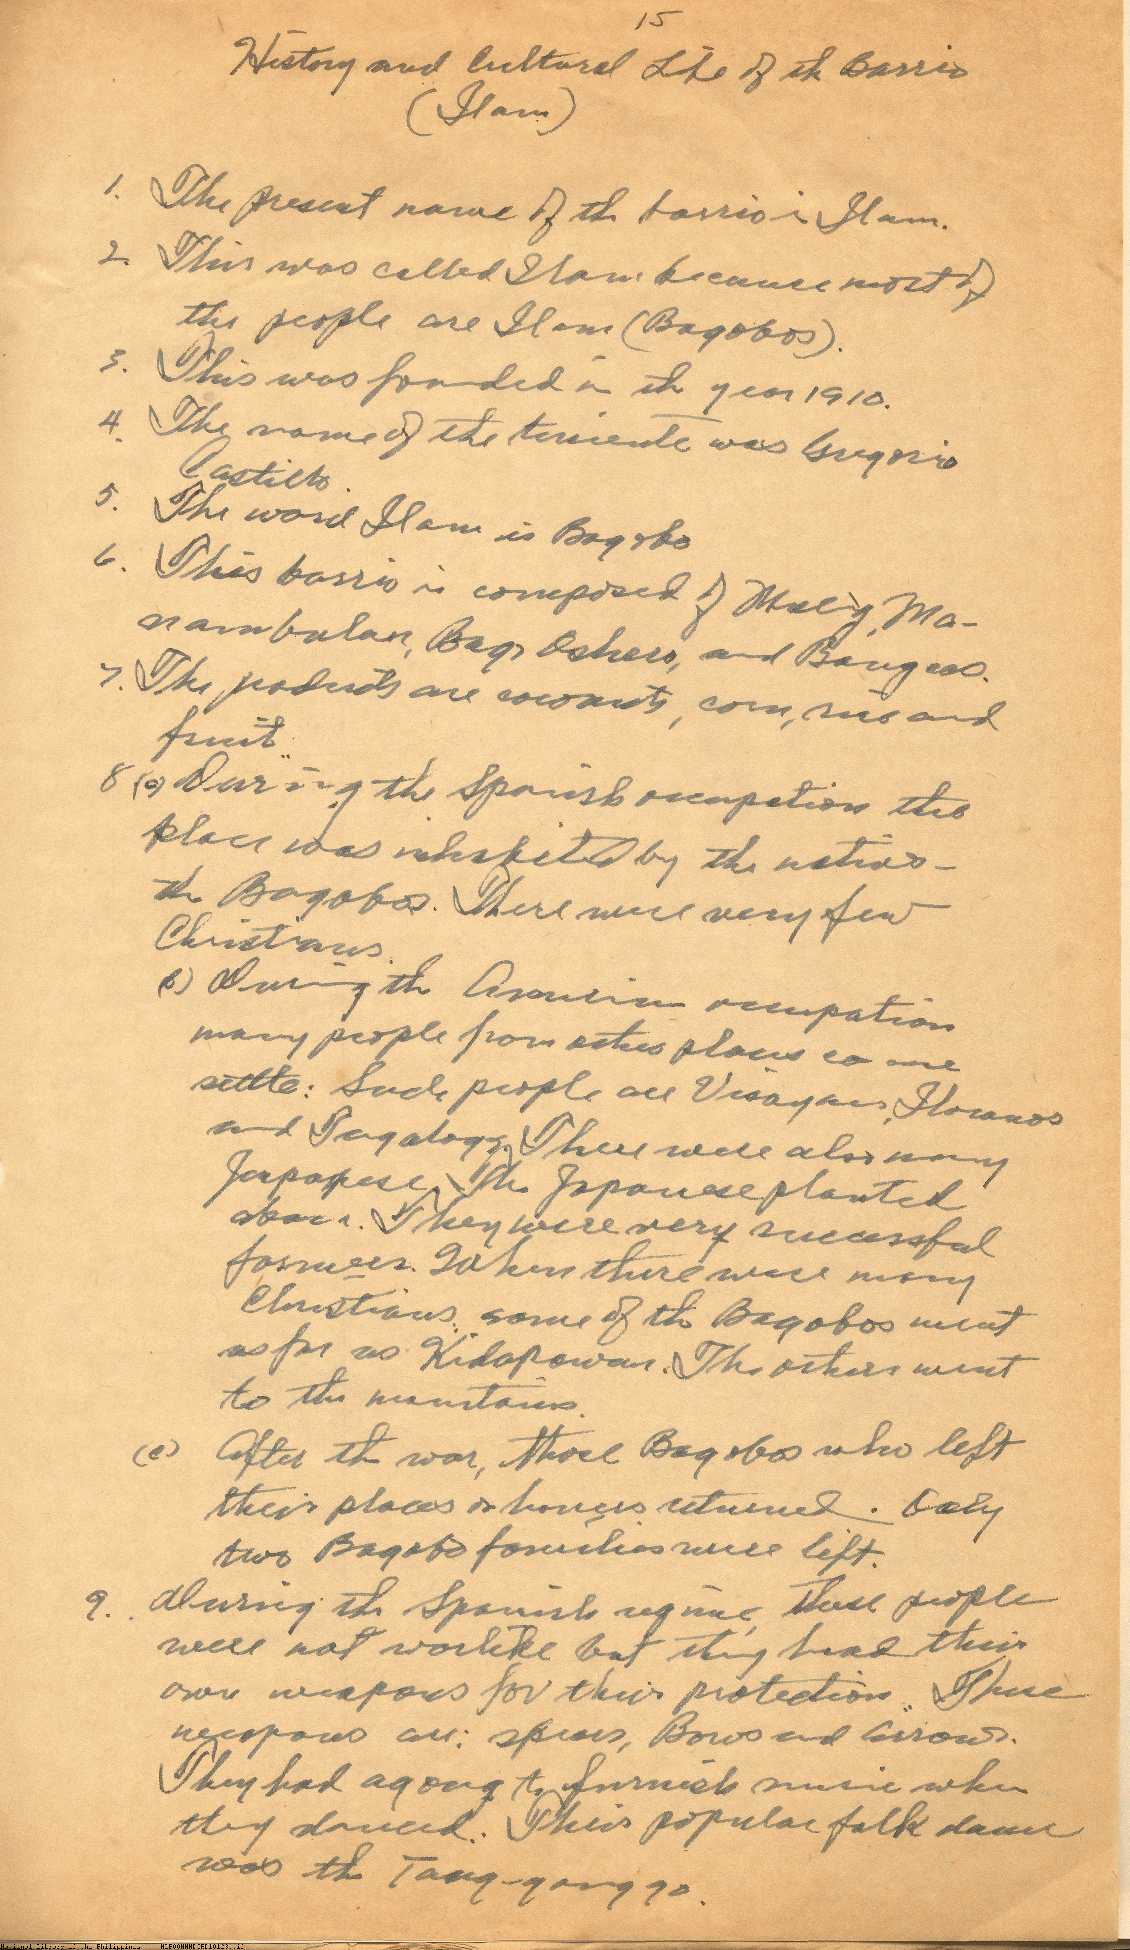 15
History and Cultural Life of th Barrio
(Ilam)
1. The present name of th barrio is Ilam.
2. This was called Ilam because most of
the people are Ilam (Bagobos).
3. This was founded in th year 1910.
4. The name of the teniente was Gregorio
Castillo.
5. The word Ilam is Bagobo
6. This barrio is composed of Mulig, Ma-
nambulan, Bago Oshero, and Bangcas.
7. The products are coconuts, corn, rice and
fruit.
8 (a) During the Spanish occupation this
place was inhabited by the natives-
th Bagobos. There were very few
Christians.
(b) During th American occupation
many people from other places came
settle: Such people are Visayans, Ilocanos
and Tagalogs. There were also many
Japanese. The Japanese planted
abaca. They were very successful
farmers. When there were many
Christians, some of th Bagobos went
as far as Kidapawan. The others went
to the mountains.
(c) After th war, those Bagobos who left
their places or homes returned. Only
two Bagobo families were left.
9. During th Spanish regime, these people
were not warlike but they had their
own weapons for their protection. These
weapons are: spears, Bows and arrows.
They had agong to furnish music when
they danced. Their popular folk dance
was th Tang-gonggo.